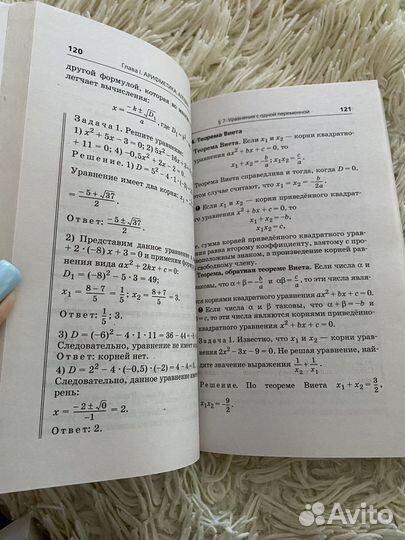 120
Глава I. АРИФМЕТИКА,
другой формулой, которая во
легчает вычисления:
x = (-k ± √D₁)/a, где D₁ =
Задача 1. Решите уравнение
1) x² + 5x - 3 = 0; 2) 5x² - 16x +
+ 11 = 0; 4) -0,5x² + 2x - 2 =
Решение. 1) D = 5² - 4 · 1 ·
Уравнение имеет два корня:
= (-5 + √37)/2.
Ответ: (-5 ± √37)/2.
2) Представим данное уравнение
+ 2 · (-8)x + 3 = 0 и применим
нения вида ax² + 2kx + c = 0:
D₁ = (-8)² - 5 · 3 = 49;
x₁ = (8 - 7)/5 = 1/5; x₂ = (8 + 7)/5 = 3.
Ответ: 1/5; 3.
3) D = (-6)² - 4 · 1 · 11 = 36 - 44 =
Следовательно, уравнение не имеет
Ответ: корней нет.
4) D = 2² - 4 · (-0,5) · (-2) =
Следовательно, данное уравнение имеет
рень:
x = (-2 ± √0)/-1 = 2.
Ответ: 2.
§ 7. Уравнения с одной переменной
121
4. Теорема Виета
Теорема Виета. Если x₁ и x₂ — корни квадратно-
уравнения ax² + bx + c = 0, то
x₁ + x₂ = -b/a; x₁x₂ = c/a.
Теорема Виета справедлива и тогда, когда D = 0.
этом случае считают, что x₁ = x₂ = -b/2a.
Если x₁ и x₂ — корни приведённого квадратно-
уравнения x² + bx + c = 0, то
x₁ + x₂ = -b,
x₁x₂ = c,
е. сумма корней приведённого квадратного уравнения
равна второму коэффициенту, взятому с про-
знаком, а произведение корней равно
свободному члену.
Теорема, обратная теореме Виета. Если числа α и
таковы, что α + β = -b/a и αβ = c/a, то эти числа явля-
корнями квадратного уравнения ax² + bx + c = 0.
Если числа α и β таковы, что α + β = -b и
= c, то эти числа являются корнями приведённого
квадратного уравнения x² + bx + c = 0.
Задача 1. Известно, что x₁ и x₂ — корни урав-
нения 2x² - 3x - 9 = 0. Не решая уравнение, най-
дите значение выражения 1/x₂ + 1/x₁.
Решение. По теореме Виета x₁ + x₂ = 3/2,
x₁x₂ = -9/2.
Avito